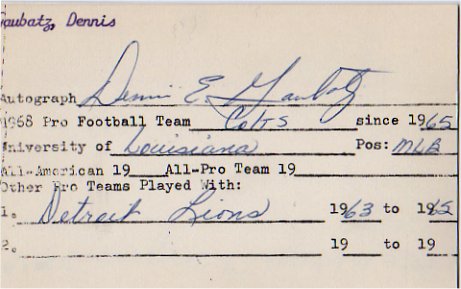 Gaubatz, Dennis
Autograph Dennis E. Gaubatz
1968 Pro Football Team Colts since 1965
University of Louisiana Pos: MLB
All-American 19 All-Pro Team 19
Other Pro Teams Played With:
1. Detroit Lions 1963 to 1965
2. 19 to 19